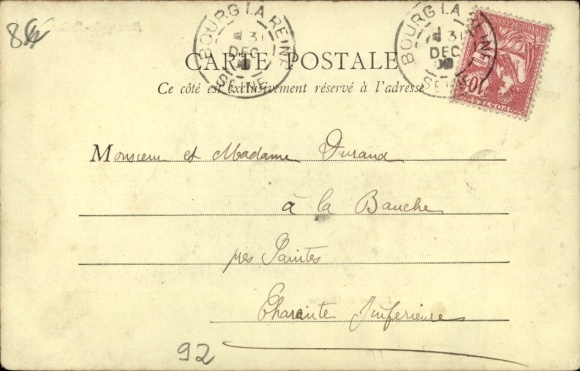 BOURG LA REINE
31
DEC
SEINE
BOURG LA REINE
31
DEC
SEINE
10
CARTE POSTALE
Ce côté est exclusivement réservé à l'adresse
Monsieur et Madame Durand
à la Bauche
près Saintes
Charente Inférieure
92